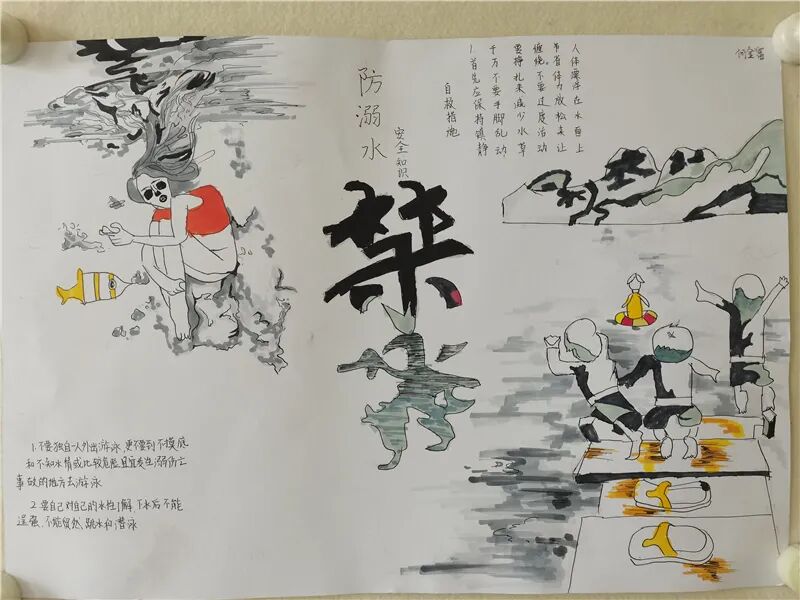 防溺水
安全知识
禁
自救措施
1.首先应保持镇静
千万不要手脚乱动
要挣扎来减少水草
缠绕。不要过度活动
节省体力放松去让
人体漂浮在水面上
1.不要独自一人外出游泳,更不要到不摸底
和不知水情或比较危险且宜发生溺伤亡
事故的地方去游泳
2 要自己对自己的水性了解 下水后不能
逞强,不能贸然 跳水和潜泳